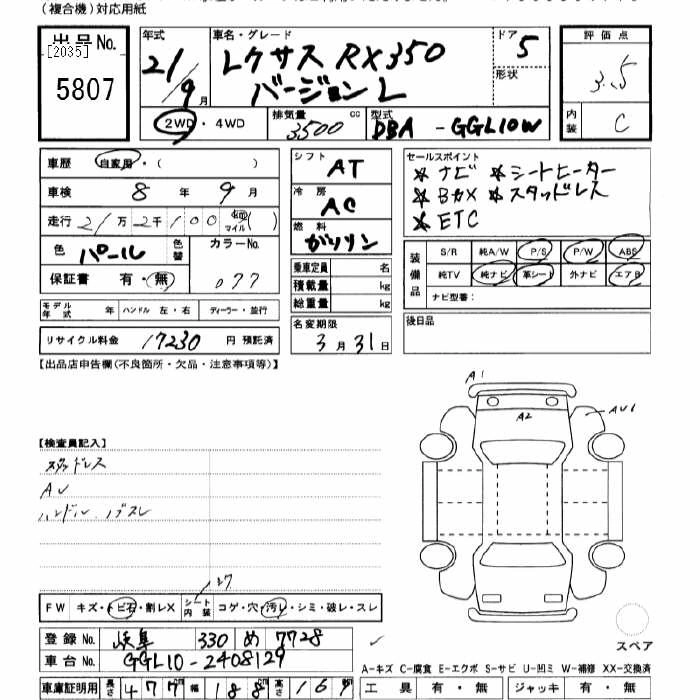 (複合機)対応用紙
出品No. [2035] 5807
年式 21/9月
車名・グレード レクサス RX350 バージョンL
ドア 5
形状
評価点 3.5
内装 C
2WD・4WD
排気量 3500cc
型式 DBA-GGL10W
車歴 自家用・( )
車検 8年9月
走行 21万2千100 km マイル ( )
色 パール 色替
カラーNo. 077
保証書 有・無
モデル年式 年 ハンドル 左・右 ディーラー・並行
リサイクル料金 17230 円 預託済
シフト AT
冷房 AC
燃料 ガソリン
乗車定員 名
積載量 kg
総重量 kg
名変期限 3月31日
セールスポイント
☆ナビ ☆シートヒーター
☆Bカメ ☆スタッドレス
☆ETC
装備品 S/R 純A/W P/S P/W ABS
純TV 純ナビ 革シート 外ナビ エアB
ナビ型番:
後日品
【出品店申告欄(不良箇所・欠品・注意事項等)】
A1
A2
【検査員記入】
スタッドレス
AU
FW キズ・トビ石・割レX シート内装 コゲ・穴・汚レ・シミ・破レ・スレ
スペア
登録No. 岐阜 330 め 7728
車台No. GGL10-2408129
A-キズ C-腐食 E-エクボ S-サビ U-凹ミ W-補修 XX-交換済
車庫証明用 長さ 477 幅 188 高さ 169
工具 有・無 ジャッキ 有・無